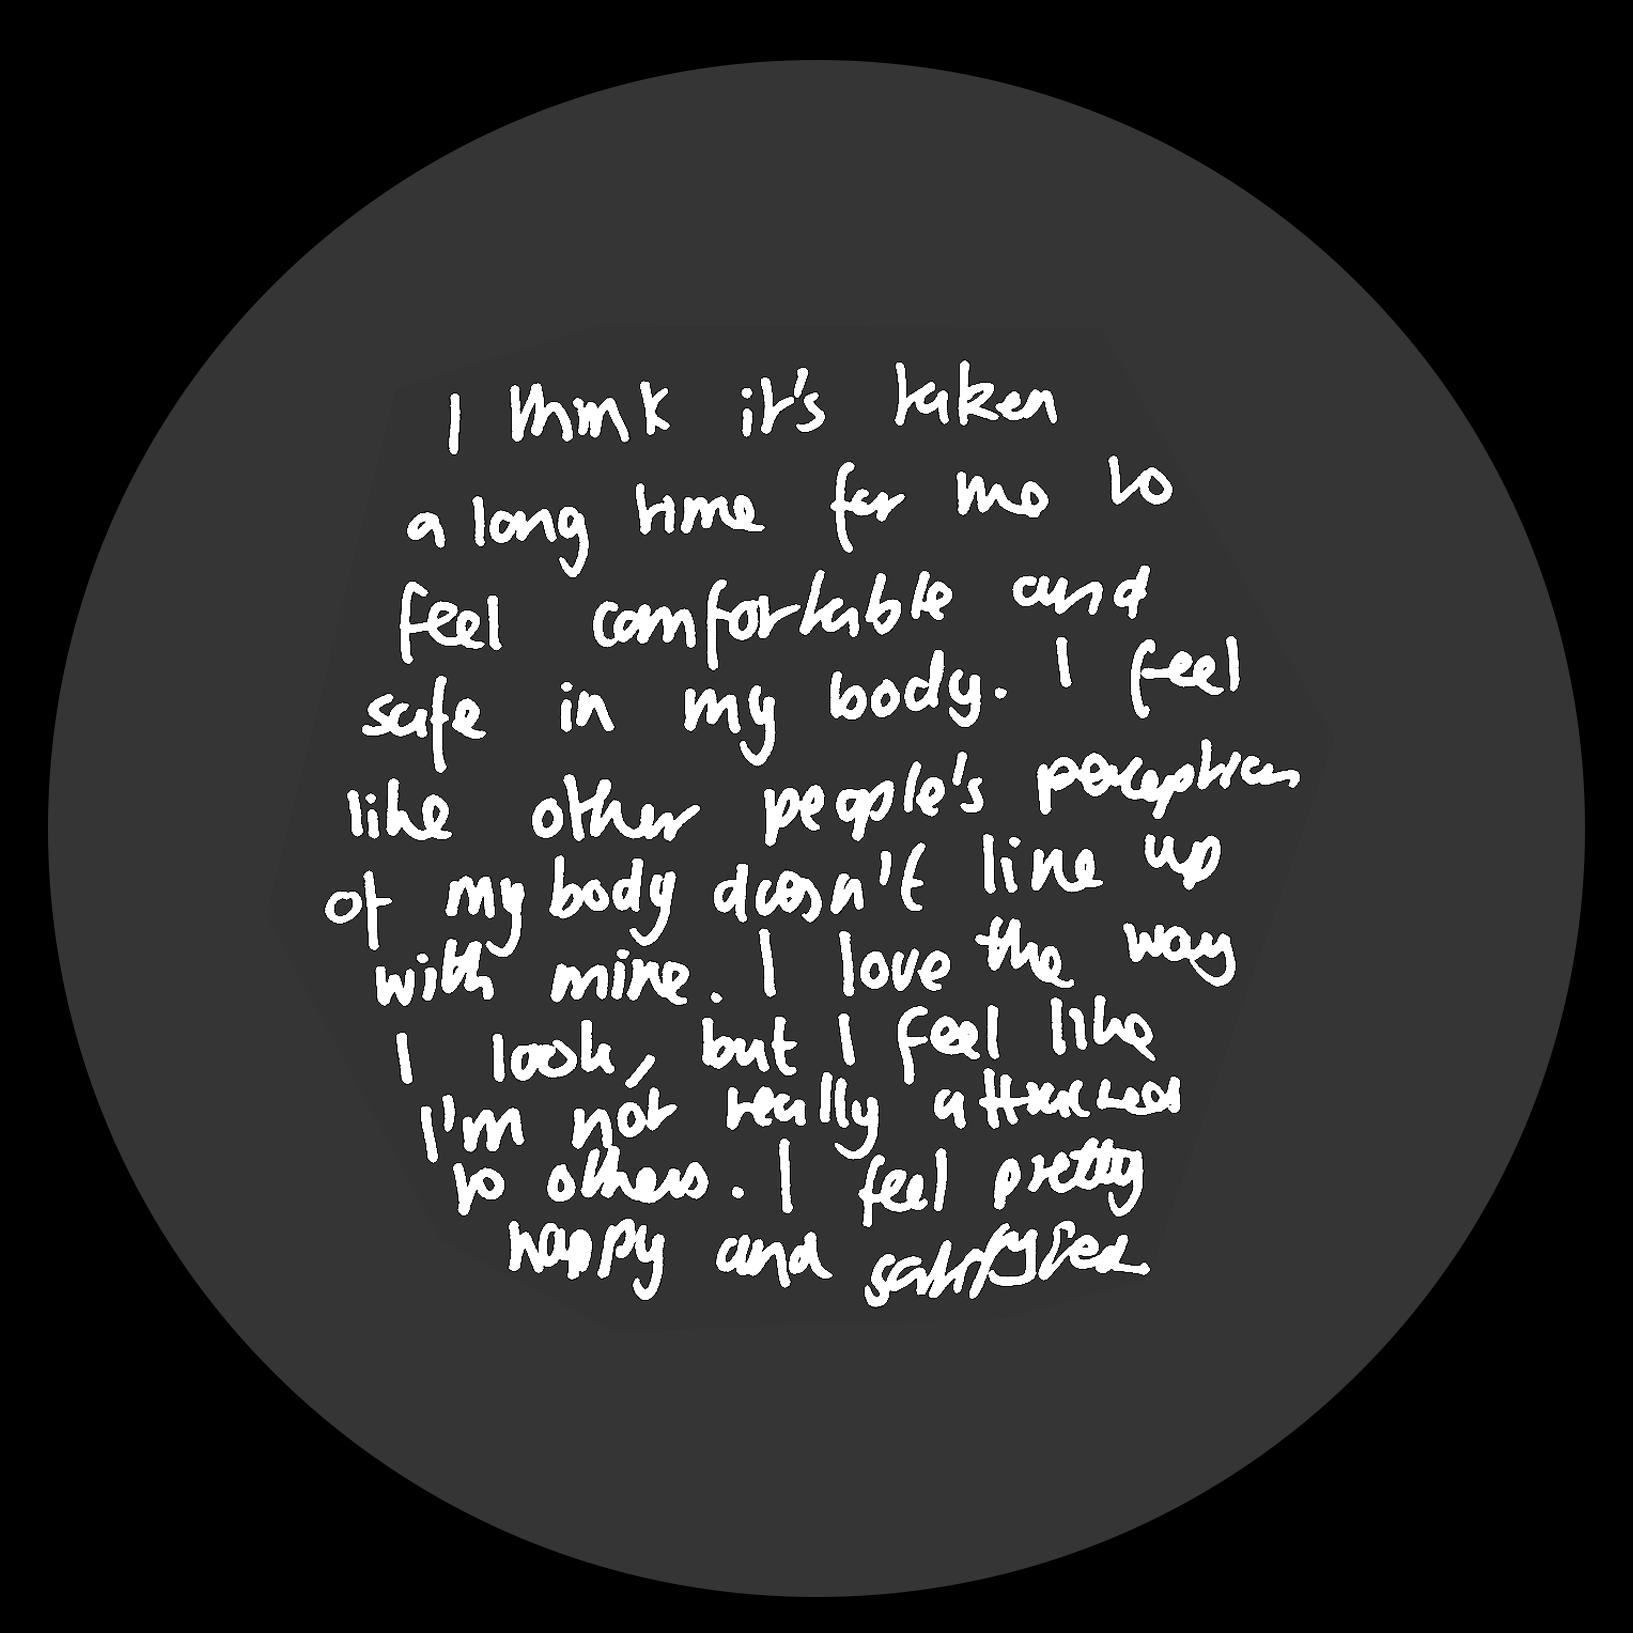 I think it's taken
a long time for me to
feel comfortable and
safe in my body. I feel
like other people's perception
of my body doesn't line up
with mine. I love the way
I look, but I feel like
I'm not really attracted
to others. I feel pretty
happy and satisfyied